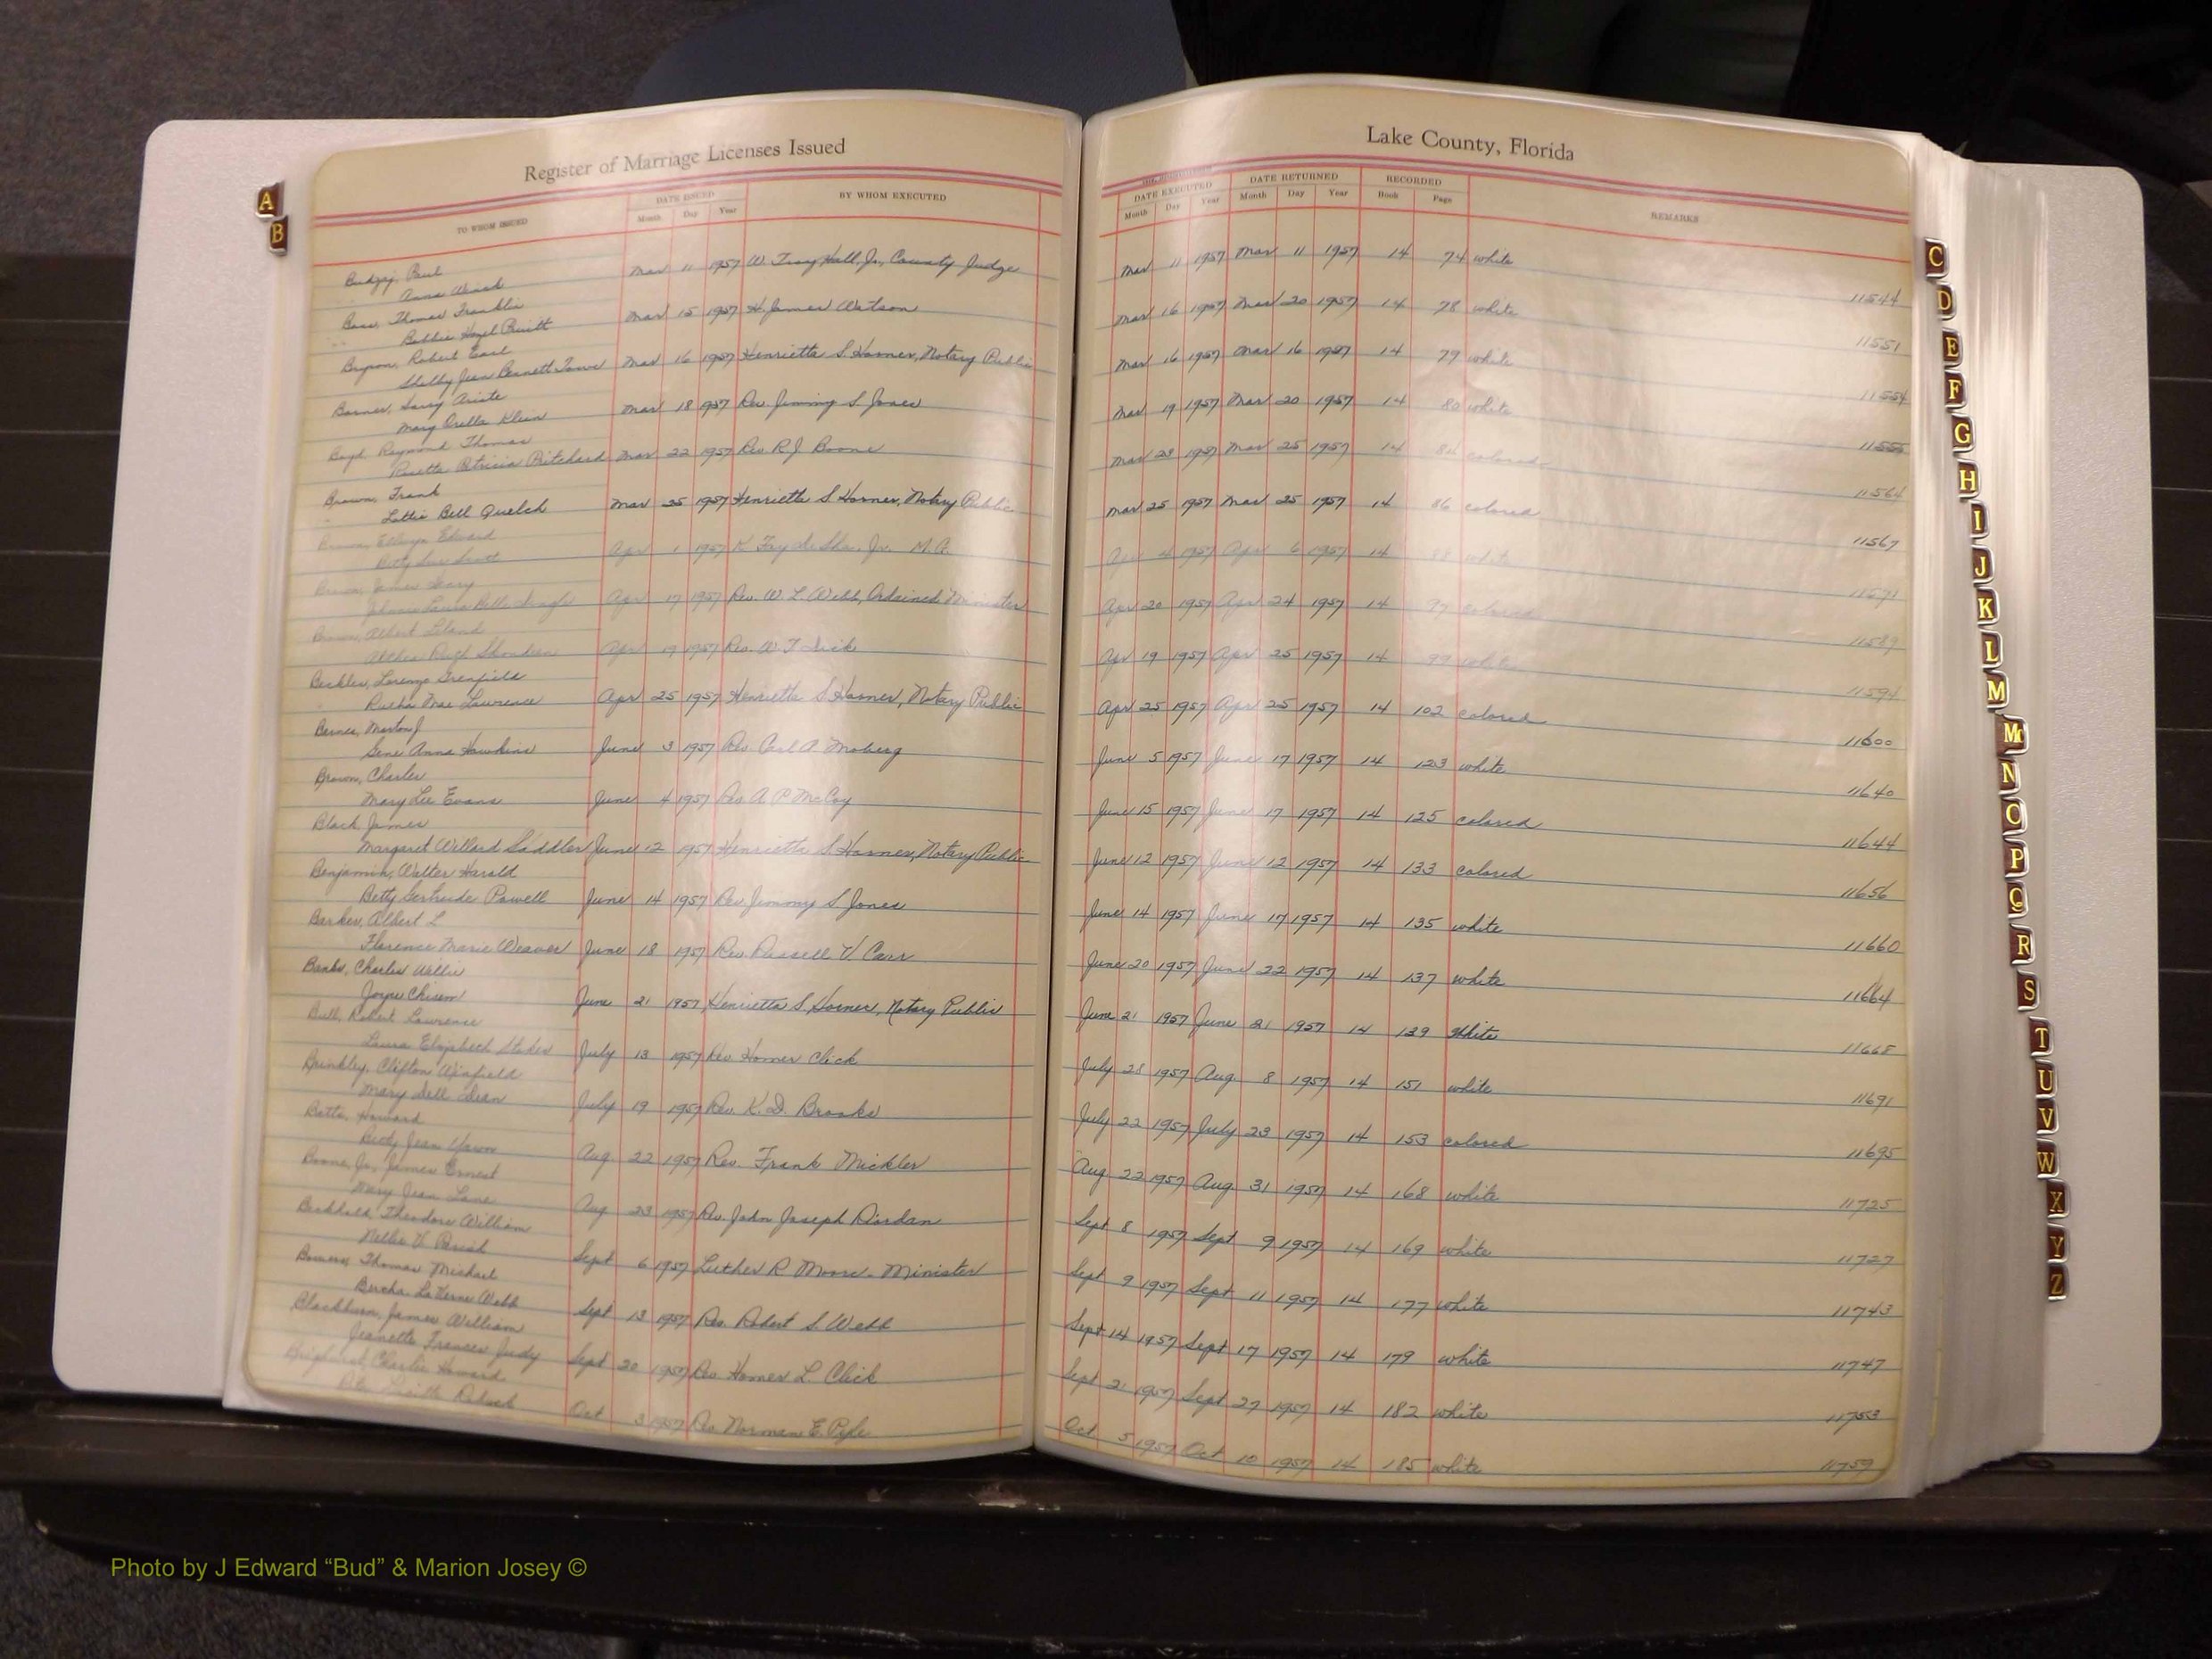 Register of Marriage Licenses Issued
Lake County, Florida
TO WHOM ISSUED
DATE ISSUED
Month Day Year
BY WHOM EXECUTED
DATE EXECUTED
Month Day Year
DATE RETURNED
Month Day Year
RECORDED
Book Page
REMARKS
Paul
Anna Mar 11 1957 W. Troy Hall, Jr., County Judge Mar 11 1957 Mar 11 1957 14 74 white 11544
Bass, Thomas Franklin
Bobbie Hazel Pruitt Mar 15 1957 H. James Watson Mar 16 1957 Mar 20 1957 14 78 white 11551
Robert Earl
Shelby Jean Bennett Mar 16 1957 Henrietta S. Horner, Notary Public Mar 16 1957 Mar 16 1957 14 79 white 11554
Harry
Mary Orella Klein Mar 18 1957 Rev. Jimmy S. Jones Mar 19 1957 Mar 20 1957 14 80 white 11555
Boyd, Raymond Thomas
Patricia Pritchard Mar 22 1957 Rev. R. J. Boone Mar 23 1957 Mar 25 1957 14 colored 11564
Brown, Frank
Lottie Bell Quelch Mar 25 1957 Henrietta S. Horner, Notary Public Mar 25 1957 Mar 25 1957 14 86 colored 11567
Brown, Edward
Betty Apr 1 1957 Jr. M.G. Apr 4 1957 Apr 6 1957 14 88 white
Brown, James
Apr 17 1957 Rev. W. L. Webb, Ordained Minister Apr 20 1957 Apr 24 1957 14 97 colored 11589
Brown, Albert Leland
Apr 19 1957 Rev. W. T. Apr 19 1957 Apr 25 1957 14 99 white 11594
Lorenzo
Mae Lawrence Apr 25 1957 Henrietta S. Horner, Notary Public Apr 25 1957 Apr 25 1957 14 102 colored 11600
Berner, Morton J
Gene Anna Hawkins June 3 1957 Rev. Carl A. Moberg June 5 1957 June 17 1957 14 123 white 11640
Brown, Charles
Mary Lee Evans June 4 1957 Rev. A. P. McCoy June 15 1957 June 17 1957 14 125 colored 11644
Black, James
Margaret Willard Saddler June 12 1957 Henrietta S. Horner, Notary Public June 12 1957 June 12 1957 14 133 colored 11656
Benjamin, Walter Harold
Betty Gertrude Powell June 14 1957 Rev. Jimmy S. Jones June 14 1957 June 17 1957 14 135 white 11660
Barker, Albert L
Florence Marie Weaver June 18 1957 Rev. Russell V. Carr June 20 1957 June 22 1957 14 137 white 11664
Banks, Charles Willie
Joyce Chisem June 21 1957 Henrietta S. Horner, Notary Public June 21 1957 June 21 1957 14 139 White 11668
Bull, Robert Lawrence
Laura Elizabeth Stokes July 13 1957 Rev. Homer Click July 28 1957 Aug. 8 1957 14 151 white 11691
Brinkley, Clifton Winfield
Mary Dell Dean July 19 1957 Rev. K. D. Brooks July 22 1957 July 23 1957 14 153 colored 11695
Botts, Howard
Betty Jean Aug 22 1957 Rev. Frank Mickler Aug 22 1957 Aug. 31 1957 14 168 white 11725
Boone, Jr., James Ernest
Mary Jean Lane Aug 23 1957 Rev. John Joseph Riordan Sept 8 1957 Sept 9 1957 14 169 white 11727
Theodore William
Nellie V. Parish Sept 6 1957 Luther R. Moore - Minister Sept 9 1957 Sept 11 1957 14 177 white 11743
Thomas Michael
Bercha LaVerne Webb Sept 13 1957 Rev. Robert S. Webb Sept 14 1957 Sept 17 1957 14 179 white 11747
Blackburn, James William
Jeanette Frances Judy Sept 20 1957 Rev Homer L. Click Sept 21 1957 Sept 27 1957 14 182 white 11753
Charlie Howard
Oct 3 1957 Rev Norman E. Pyle Oct 5 1957 Oct 10 1957 14 185 white 11759
A
B
C
D
E
F
G
H
I
J
K
L
M
Mc
N
O
P
Q
R
S
T
U
V
W
X
Y
Z
Photo by J Edward “Bud” & Marion Josey ©